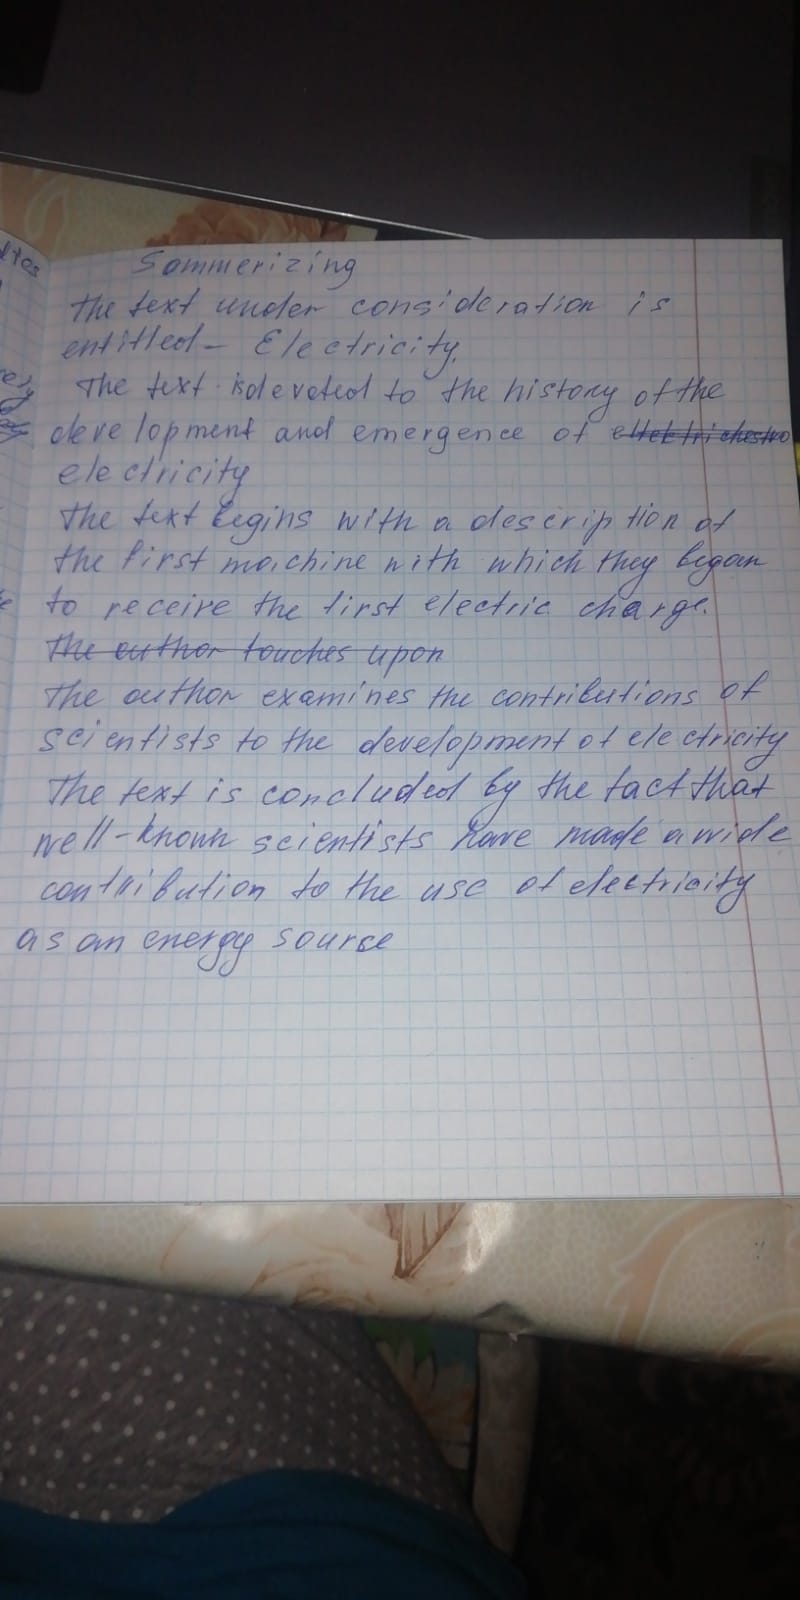 Sommerizing
The text under consideration is
entitled - Electricity.
The text is devoted to the history of the
development and emergence of
electricity
The text begins with a description of
the first machine with which they began
to receive the first electric charge.
The author touches upon
The author examines the contributions of
scientists to the development of electricity
The text is concluded by the fact that
well-known scientists have made a wide
contribution to the use of electricity
as an energy source